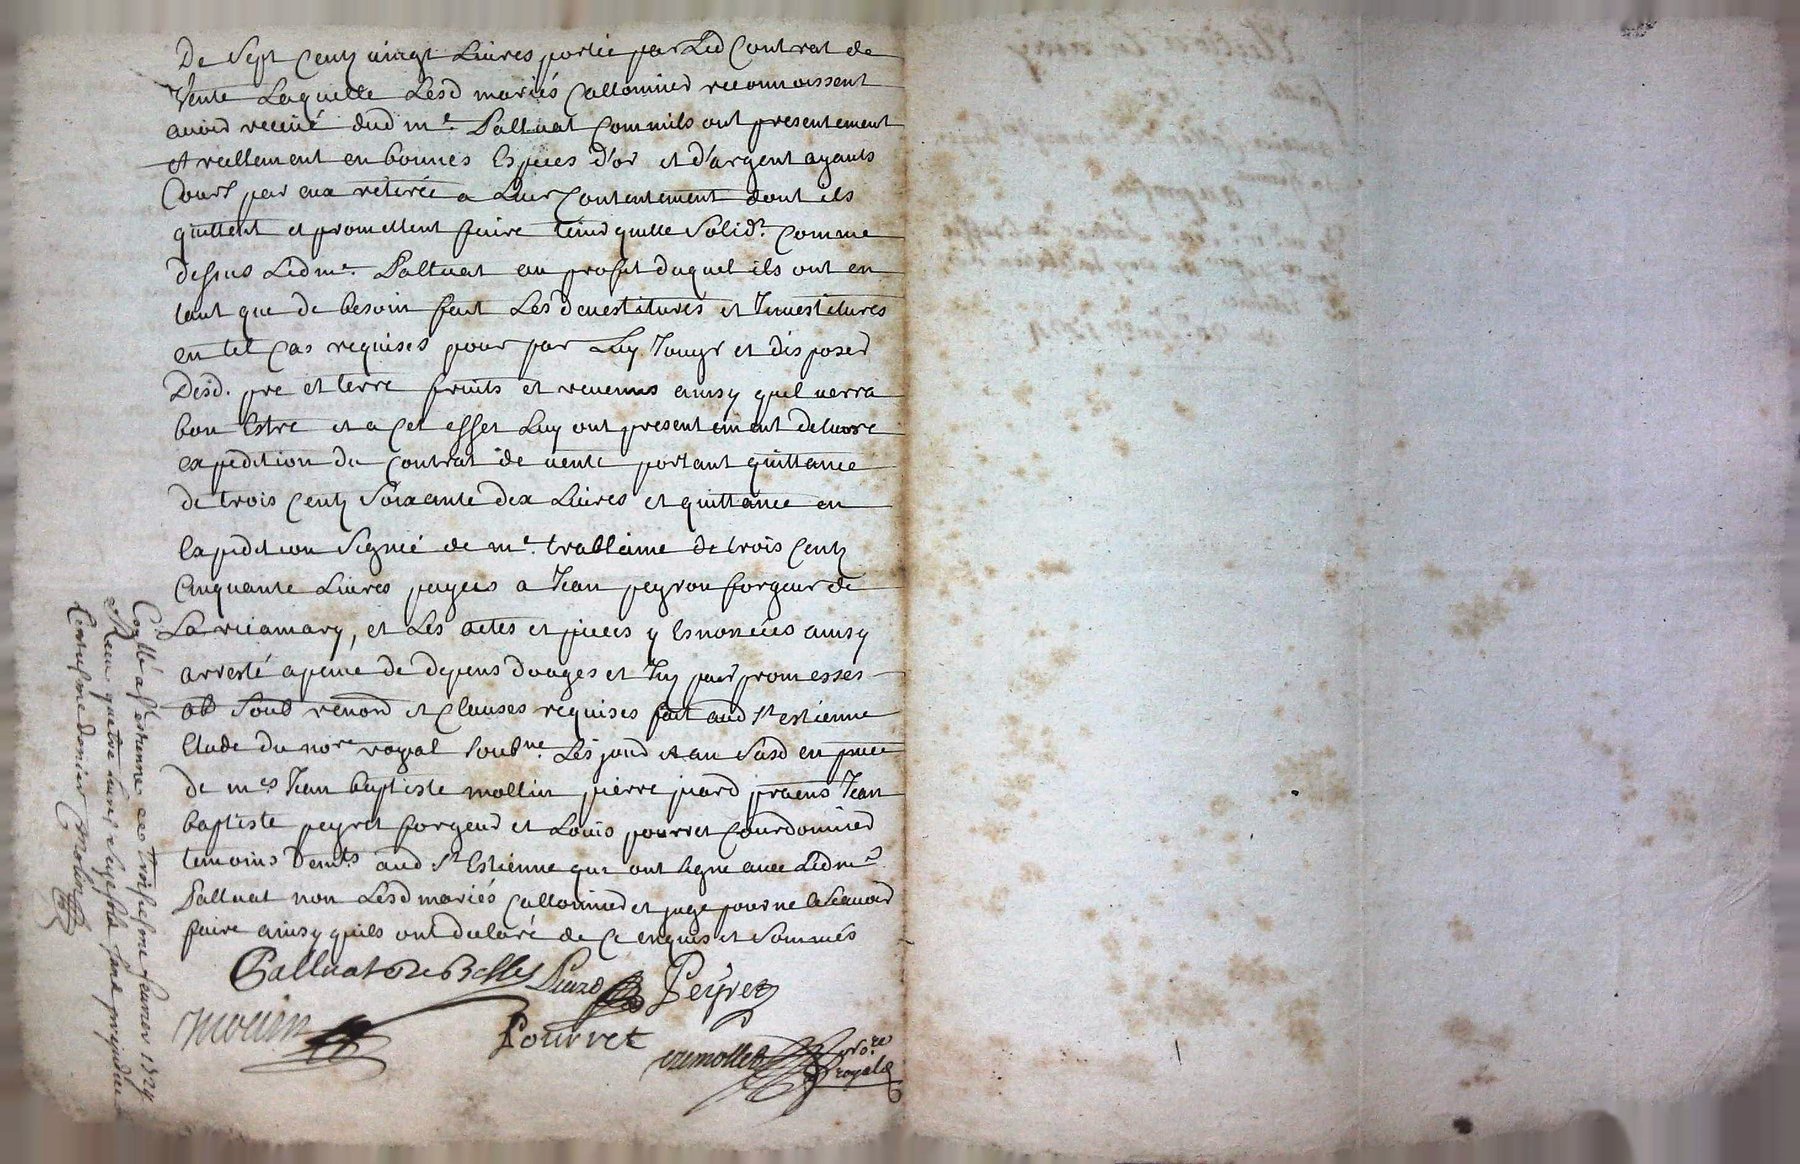 De Sept Centz vingt Livres portée par Led Contrat de
Vente Laquelle Lesd mariés Callonnier reconnoissent
avoir receüe dud me. Palluat Comme ils ont presentement
et reellement en bonnes Especes d'or et d'argent ayants
Cours par eux retirée a Leur Contentement dont ils
quittent et promettent faire tenir quitte Solid.t Comme
dessus Led me. Palluat au profit duquel ils ont en
tant que de besoin fait Les devestitures et Jnvestitures
en tel Cas requises pour par Luy Jouyr et disposer
Desd. pre et terre fruits et revenus ainsy quel verra
bon Estre et a Cet effet Luy ont presentement delivré
expedition du Contrat de vente portant quittance
de trois Centz Soixante dix Livres et quittance en
Expedition Signée de me. trablaine de trois Centz
Cinquante Livres payées a Jean peyron forgeur de
La ricamary, et Les actes et pieces y Enoncées ainsy
arresté a peine de depens domages et Jnt par promesses
ob Soub renond et Clauses requises fait aud St estienne
Etude du nore royal Soubne. Les jour et an Susd en pnce
de mes Jean baptiste mollin pierre piard pratiens Jean
baptiste peyret forgeur et Louis pourret Courdonnier
temoins Demts. aud St Estienne qui ont Signé avec Led me
Palluat non Lesd mariés Callonnier et juge pour ne le Scavoir
faire ainsy quils ont declaré de Ce enquis et Sommés
Palluat De Besses Piard Peyret
Molein Pourret
cremollet no.re
royal
Conllé a St estienne ce Janvier 1724
Receu quatre livres
Centiesme denier Molin